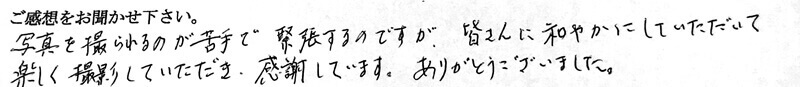 ご感想をお聞かせ下さい。
写真を撮られるのが苦手で 緊張するのですが、皆さんに和やかにしていただいて
楽しく撮影していただき、感謝しています。ありがとうございました。